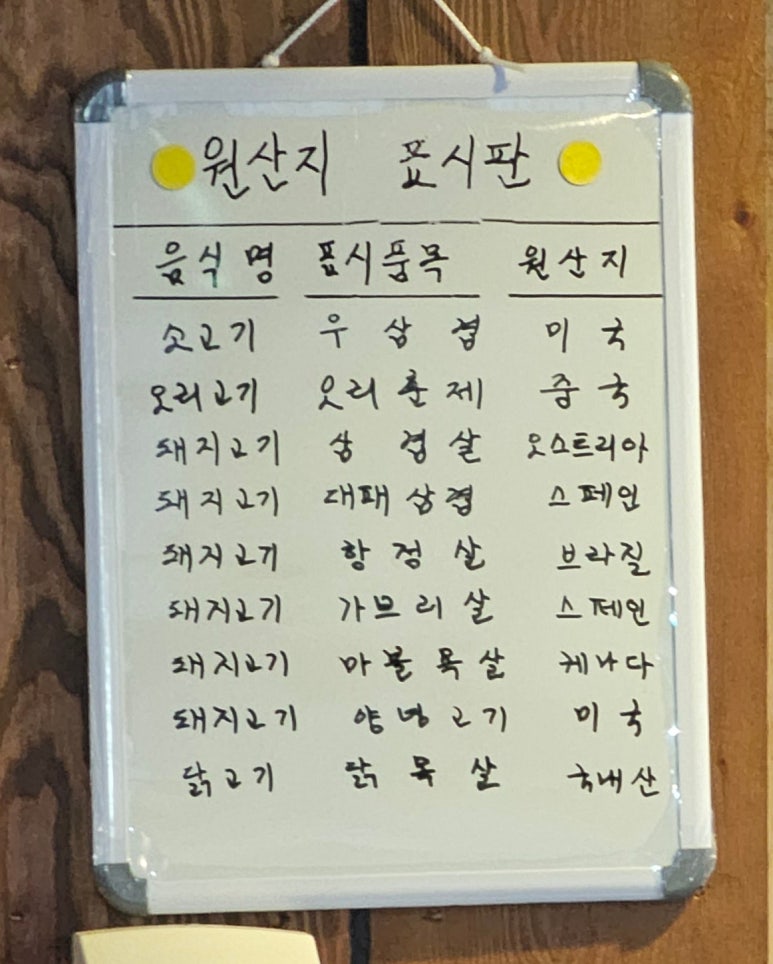 원산지 표시판
음식명 표시품목 원산지
소고기 우삼겹 미국
오리고기 오리훈제 중국
돼지고기 삼겹살 오스트리아
돼지고기 대패삼겹 스페인
돼지고기 항정살 브라질
돼지고기 가브리살 스페인
돼지고기 마블목살 케나다
돼지고기 양념고기 미국
닭고기 닭목살 국내산